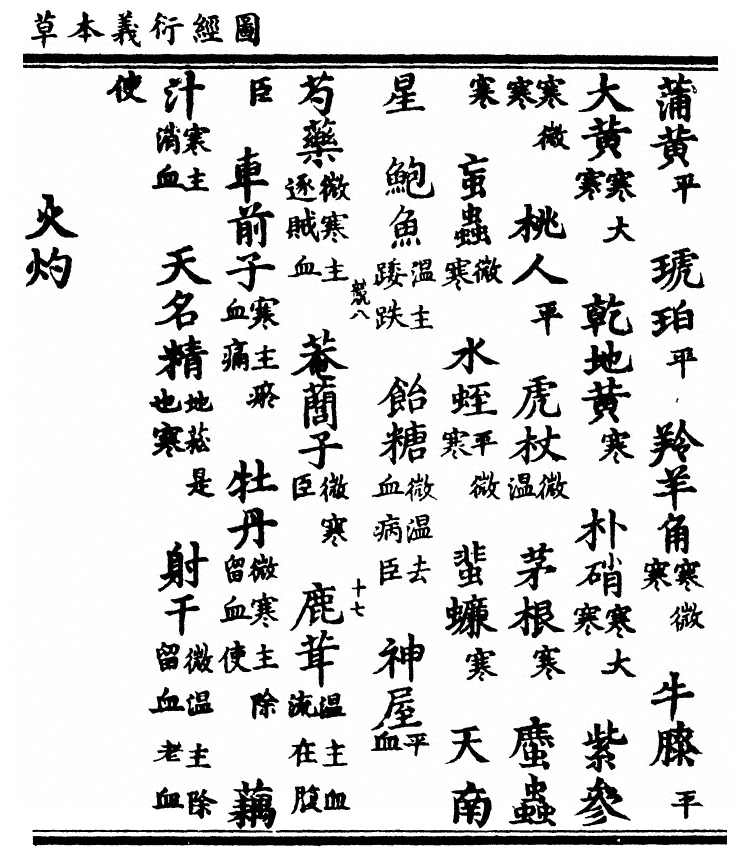 圖經衍義本草
蒲黃平 琥珀平 羚羊角寒微寒 牛膝平
大黃寒大寒 乾地黃寒 朴硝寒大寒 紫參
寒微寒 桃人平 虎杖微溫 茅根寒 䗪蟲
寒 䖟蟲微寒 水蛭平微寒 蜚蠊寒 天南
星 鮑魚溫主踒跌 飴糖微溫去血病臣 神屋平血
競八 十七
芍藥微寒主逐賊血 菴䕡子微寒臣 鹿茸溫主血流在腹
臣 車前子寒主瘀血痛 牡丹微寒主除留血使 藕
汁寒主消血 天名精地菘是也寒 射干微溫主除留血老血
使
火灼